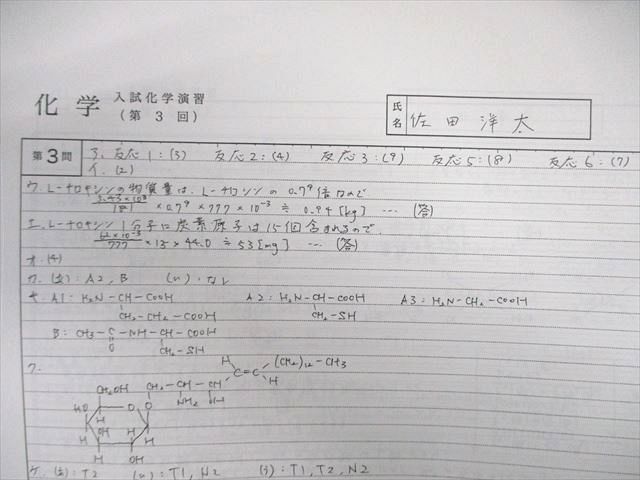 化 学 入試化学演習
(第 3 回)
氏名 佐田 洋太
第3問 ア. 反応1:(3) 反応2:(4) 反応3:(9) 反応5:(8) 反応6:(7)
イ. (2)
ウ. L-チロキシンの物質量は、L-チロシンの 0.79倍なので
181 × 0.79 × 777 × 10⁻³ ≒ 0.94 [kg] … (答)
エ. L-チロキシン1分子に炭素原子は15個含まれるので、
777 × 15 × 44.0 ≒ 53 [mg] … (答)
オ. (4)
カ. (あ): A2, B (い): なし
キ. A1: H₂N-CH-COOH A2: H₂N-CH-COOH A3: H₂N-CH₂-COOH
CH₂-CH₂-COOH CH₂-SH
B: CH₃-C-NH-CH-COOH
O CH₂-SH
ク.
H (CH₂)₁₂-CH₃
C=C
CH₂OH CH₂-CH-CH H
O O NH₂ OH
HO H H
H OH H
H OH
ケ. (あ): T2 (い): T1, N2 (う): T1, T2, N2